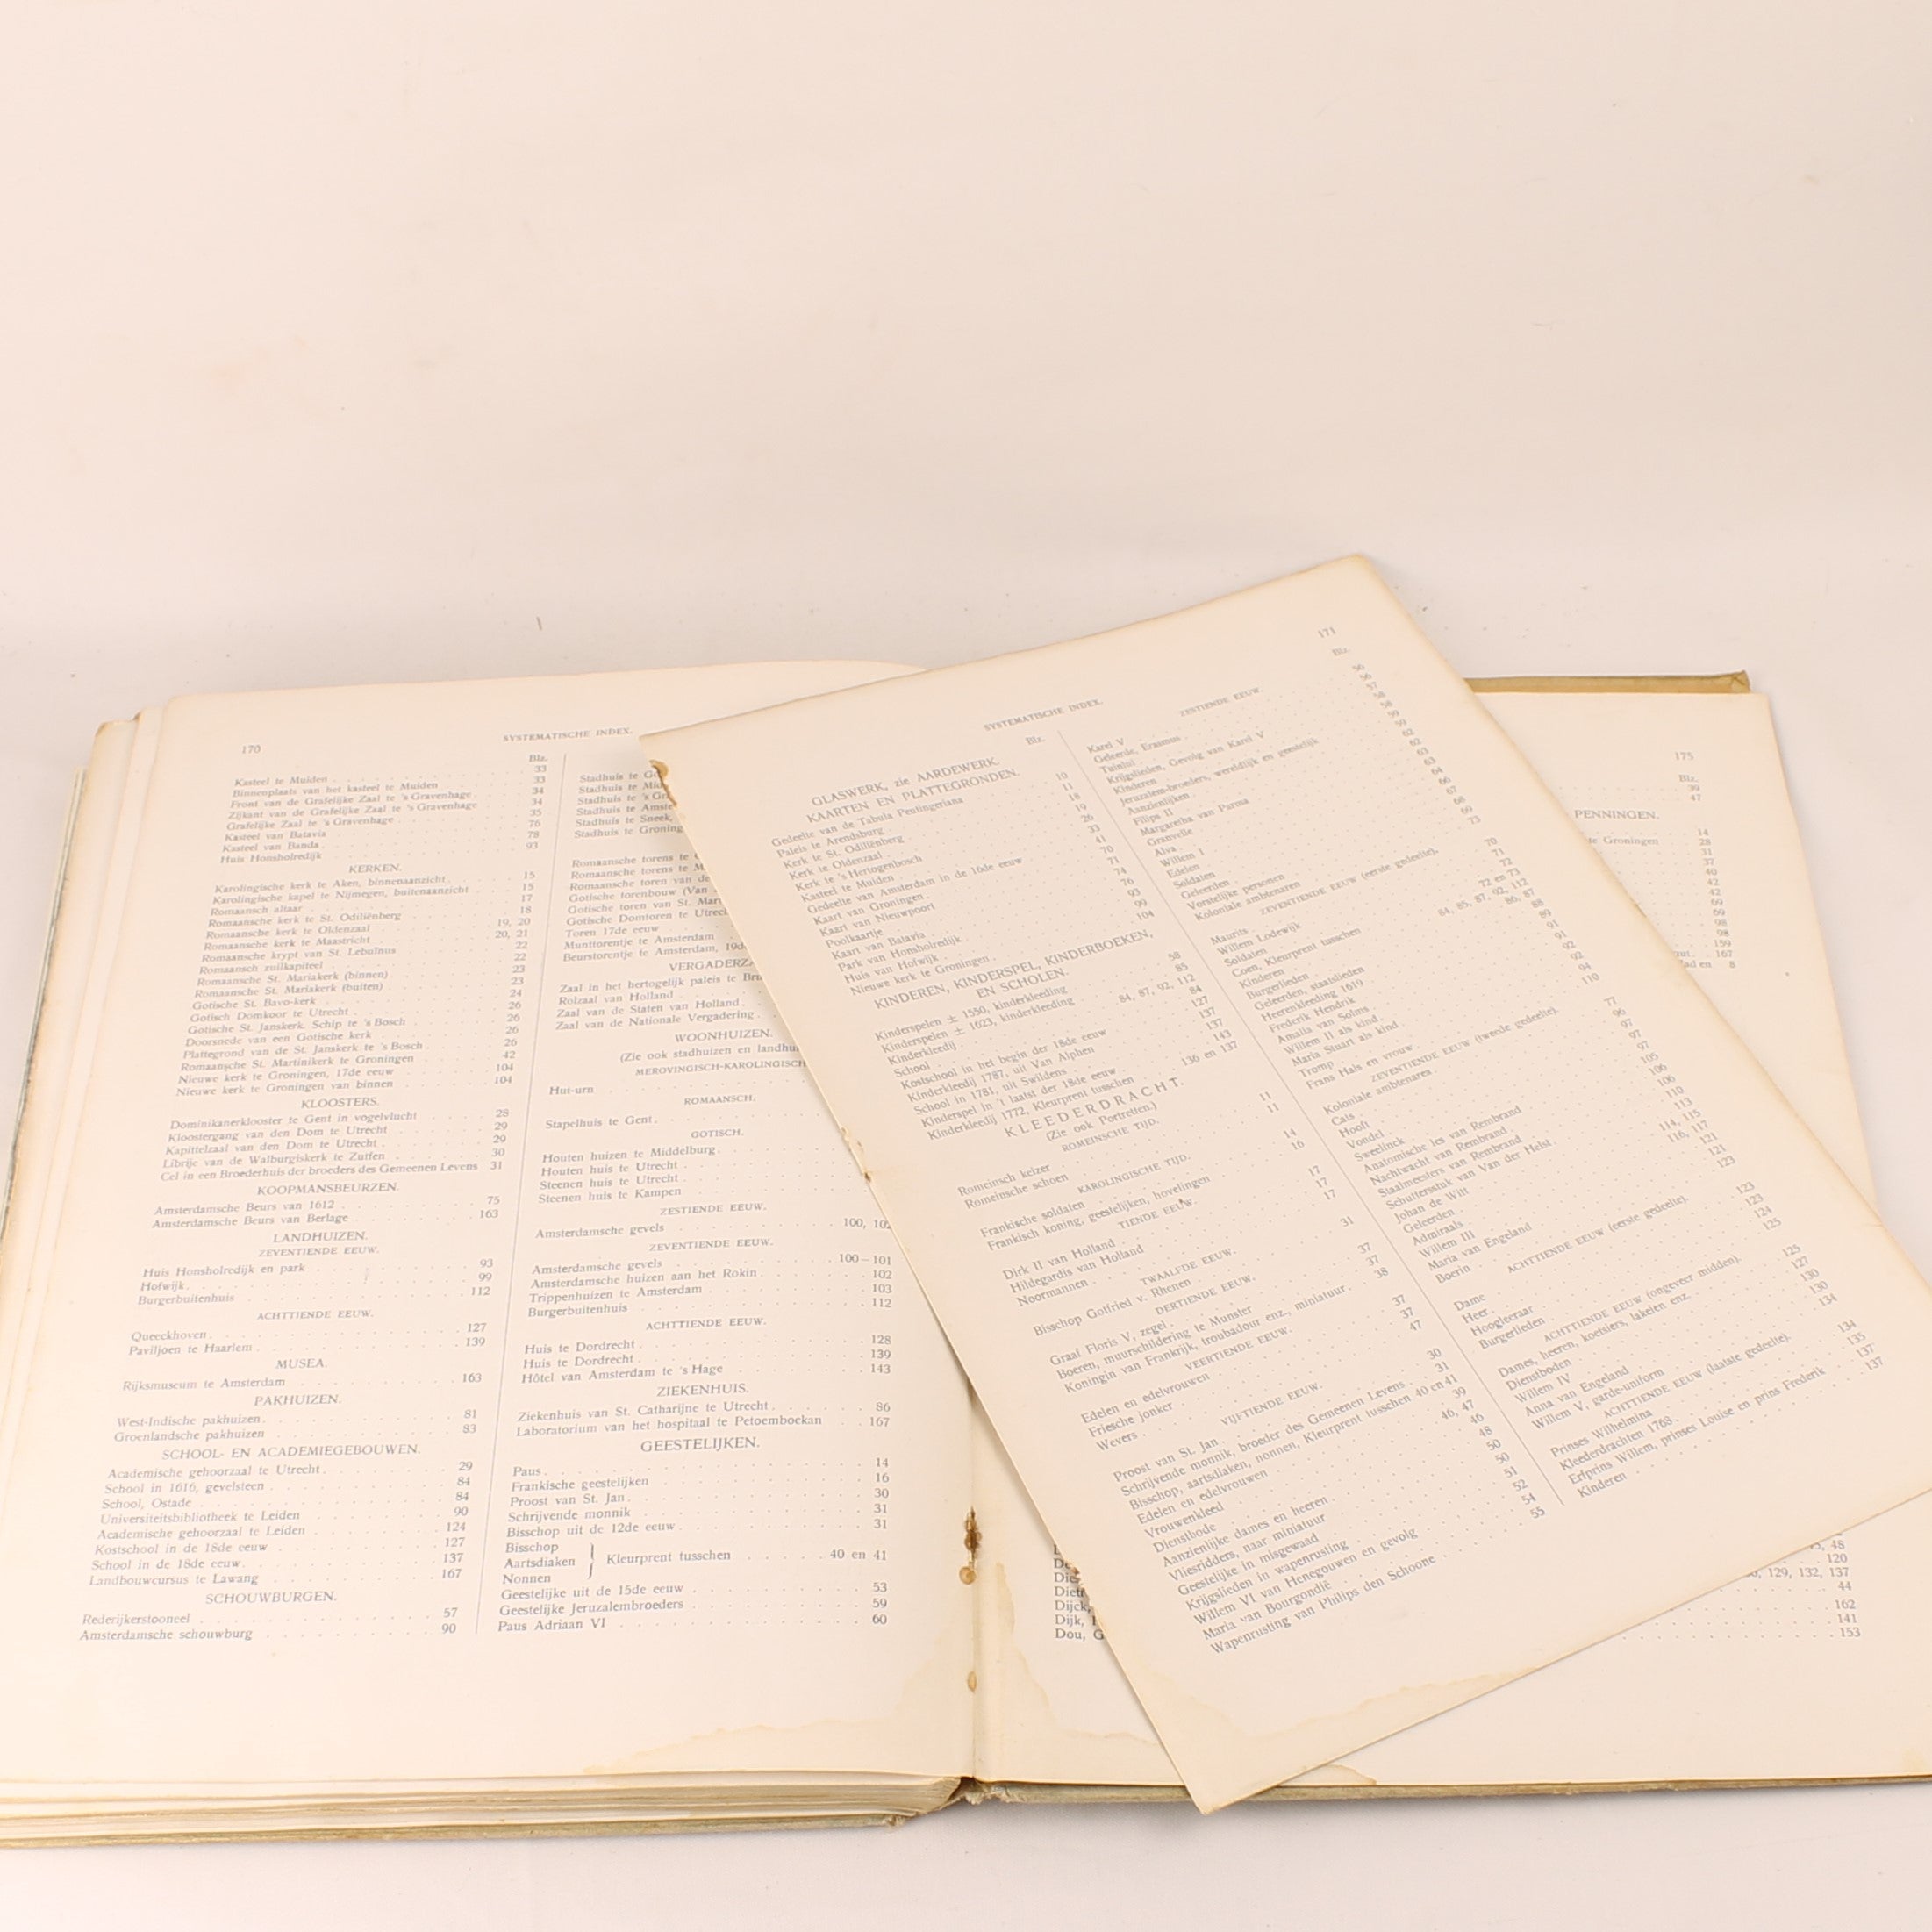 170
SYSTEMATISCHE INDEX.
Blz.
Kasteel te Muiden 33
Binnenplaats van het kasteel te Muiden 33
Front van de Grafelijke Zaal te 's Gravenhage 34
Zijkant van de Grafelijke Zaal te 's Gravenhage 34
Grafelijke Zaal te 's Gravenhage 35
Kasteel van Batavia 76
Kasteel van Banda 78
Huis Honsholredijk 93
KERKEN.
Karolingische kerk te Aken, binnenaanzicht 15
Karolingische kapel te Nijmegen, buitenaanzicht 15
Romaansch altaar 17
Romaansche kerk te St. Odiliënberg 18
Romaansche kerk te Oldenzaal 19, 20
Romaansche kerk te Maastricht 20, 21
Romaansche krypt van St. Lebuïnus 22
Romaansch zuilkapiteel 22
Romaansche St. Mariakerk (binnen) 23
Romaansche St. Mariakerk (buiten) 23
Gotische St. Bavo-kerk 24
Gotisch Domkoor te Utrecht 26
Gotische St. Janskerk. Schip te 's Bosch 26
Doorsnede van een Gotische kerk 26
Plattegrond van de St. Janskerk te 's Bosch 26
Romaansche St. Martinikerk te Groningen 42
Nieuwe kerk te Groningen, 17de eeuw 104
Nieuwe kerk te Groningen van binnen 104
KLOOSTERS.
Dominikanerklooster te Gent in vogelvlucht 28
Kloostergang van den Dom te Utrecht 29
Kapittelzaal van den Dom te Utrecht 29
Librije van de Walburgiskerk te Zutfen 30
Cel in een Broederhuis der broeders des Gemeenen Levens 31
KOOPMANSBEURZEN.
Amsterdamsche Beurs van 1612 75
Amsterdamsche Beurs van Berlage 163
LANDHUIZEN.
ZEVENTIENDE EEUW.
Huis Honsholredijk en park 93
Hofwijk 99
Burgerbuitenhuis 112
ACHTTIENDE EEUW.
Queeckhoven 127
Paviljoen te Haarlem 139
MUSEA.
Rijksmuseum te Amsterdam 163
PAKHUIZEN.
West-Indische pakhuizen 81
Groenlandsche pakhuizen 83
SCHOOL- EN ACADEMIEGEBOUWEN.
Academische gehoorzaal te Utrecht 29
School in 1616, gevelsteen 84
School, Ostade 84
Universiteitsbibliotheek te Leiden 90
Academische gehoorzaal te Leiden 124
Kostschool in de 18de eeuw 127
School in de 18de eeuw 137
Landbouwcursus te Lawang 167
SCHOUWBURGEN.
Rederijkerstooneel 57
Amsterdamsche schouwburg 90
Stadhuis te
Stadhuis te
Stadhuis te 's
Stadhuis te
Stadhuis te Sneek,
Stadhuis te
Romaansche torens te
Romaansche torens te
Romaansche toren van de
Gotische torenbouw (Van
Gotische toren van St.
Gotische Domtoren te
Toren 17de eeuw
Munttorentje te Amsterdam
Beurstorentje te Amsterdam,
Zaal in het hertogelijk paleis te
Rolzaal van Holland
Zaal van de Staten van Holland
Zaal van de Nationale Vergadering
WOONHUIZEN.
(Zie ook stadhuizen en
MEROVINGISCH-KAROLINGISCH
Hut-urn
ROMAANSCH.
Stapelhuis te Gent
GOTISCH.
Houten huizen te Middelburg
Houten huis te Utrecht
Steenen huis te Utrecht
Steenen huis te Kampen
ZESTIENDE EEUW.
Amsterdamsche gevels 100, 102
ZEVENTIENDE EEUW.
Amsterdamsche gevels 100–101
Amsterdamsche huizen aan het Rokin 102
Trippenhuizen te Amsterdam 103
Burgerbuitenhuis 112
ACHTTIENDE EEUW.
Huis te Dordrecht 128
Huis te Dordrecht 139
Hôtel van Amsterdam te 's Hage 143
ZIEKENHUIS.
Ziekenhuis van St. Catharijne te Utrecht 86
Laboratorium van het hospitaal te Petoemboekan 167
GEESTELIJKEN.
Paus 14
Frankische geestelijken 16
Proost van St. Jan 30
Schrijvende monnik 31
Bisschop uit de 12de eeuw 31
Bisschop
Aartsdiaken } Kleurprent tusschen 40 en 41
Nonnen
Geestelijke uit de 15de eeuw 53
Geestelijke Jeruzalembroeders 59
Paus Adriaan VI 60
SYSTEMATISCHE INDEX.
171
Blz.
GLASWERK, zie AARDEWERK.
KAARTEN EN PLATTEGRONDEN.
Gedeelte van de Tabula Peutingeriana 10
Paleis te Arendsburg 11
Kerk te St. Odiliënberg 18
Kerk te Oldenzaal 19
Kerk te 's Hertogenbosch 26
Kasteel te Muiden 33
Gedeelte van Amsterdam in de 16de eeuw 41
Kaart van Groningen 70
Kaart van Nieuwpoort 71
Poolkaartje 74
Kaart van Batavia 76
Park van Honsholredijk 93
Huis van Hofwijk 99
Nieuwe kerk te Groningen 104
KINDEREN, KINDERSPEL, KINDERBOEKEN,
EN SCHOLEN.
Kinderspelen ± 1550, kinderkleeding 58
Kinderspelen ± 1623, kinderkleeding 85
Kinderkleedij 84, 87, 92, 112
School 84
Kostschool in het begin der 18de eeuw 127
Kinderkleedij 1787, uit Van Alphen 137
School in 1781, uit Swildens 137
Kinderspel in 't laatst der 18de eeuw 143
Kinderkleedij 1772, Kleurprent tusschen 136 en 137
KLEEDERDRACHT.
(Zie ook Portretten.)
ROMEINSCHE TIJD.
Romeinsch keizer 11
Romeinsche schoen 11
KAROLINGISCHE TIJD.
Frankische soldaten 14
Frankisch koning, geestelijken, hovelingen 16
TIENDE EEUW.
Dirk II van Holland 17
Hildegardis van Holland 17
Noormannen 17
TWAALFDE EEUW.
Bisschop Gotfried v. Rhenen 31
DERTIENDE EEUW.
Graaf Floris V, zegel 37
Boeren, muurschildering te Munster 37
Koningin van Frankrijk, troubadour enz., miniatuur 38
VEERTIENDE EEUW.
Edelen en edelvrouwen 37
Friesche jonker 37
Wevers 47
VIJFTIENDE EEUW.
Proost van St. Jan 30
Schrijvende monnik, broeder des Gemeenen Levens 31
Bisschop, aartsdiaken, nonnen, Kleurprent tusschen 40 en 41
Edelen en edelvrouwen 39
Vrouwenkleed 46, 47
Dienstbode 46
Aanzienlijke dames en heeren 48
Vliesridders, naar miniatuur 50
Geestelijke in misgewaad 50
Krijgslieden in wapenrusting 51
Willem VI van Henegouwen en gevolg 52
Maria van Bourgondië 54
Wapenrusting van Philips den Schoone 55
Blz.
ZESTIENDE EEUW.
Karel V 56
Geleerde, Erasmus 56
Tuinlui 57
Krijgslieden, Gevolg van Karel V 58
Kinderen 58
Jeruzalem-broeders, wereldlijk en geestelijk 59
Aanzienlijken
Filips II 62
Margaretha van Parma 62
Granvelle 63
Alva 63
Willem I 64
Edelen 66
Soldaten 67
Geleerden 68
Vorstelijke personen 69
Koloniale ambtenaren 73
ZEVENTIENDE EEUW (eerste gedeelte).
Maurits 70
Willem Lodewijk 71
Soldaten 72
Coen, Kleurprent tusschen 72 en 73
Kinderen 84, 85, 87, 92, 112
Burgerlieden 86, 87
Geleerden, staatslieden 88
Heerenkleeding 1619 89
Frederik Hendrik 91
Amalia van Solms 91
Willem II als kind 92
Maria Stuart als kind 92
Tromp 94
Frans Hals en vrouw 110
ZEVENTIENDE EEUW (tweede gedeelte).
Koloniale ambtenaren 77
Cats 96
Hooft 97
Vondel 97
Sweelinck 97
Anatomische les van Rembrand 105
Nachtwacht van Rembrand 106
Staalmeesters van Rembrand 106
Schuttersstuk van Van der Helst 110
Johan de Witt 113
Geleerden 114, 115
Admiraals 116, 117
Willem III 121
Maria van Engeland 121
Boerin 123
ACHTTIENDE EEUW (eerste gedeelte).
Dame 123
Heer 123
Hoogleeraar 124
Burgerlieden 125
ACHTTIENDE EEUW (omgeveer midden).
Dames, heeren, koetsiers, lakeien enz. 125
Dienstboden 127
Willem IV 130
Anna van Engeland 130
Willem V, garde-uniform 134
ACHTTIENDE EEUW (laatste gedeelte).
Prinses Wilhelmina 134
Kleederdrachten 1768 135
Erfprins Willem, prinses Louise en prins Frederik 137
Kinderen 137
175
Blz.
39
47
PENNINGEN.
14
te Groningen 28
31
37
40
42
42
69
69
98
98
159
167
en 8
48
120
129, 132, 137
44
Dijck, 162
Dijk, 141
Dou, G 153